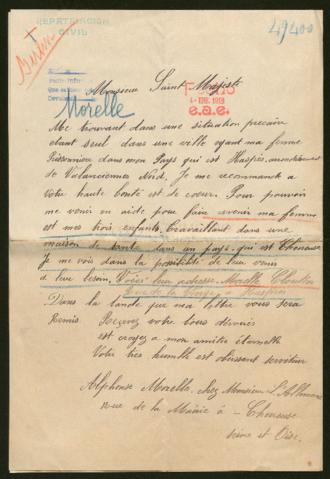 REPATRIACIÓN
CIVIL
49400
Monsieur Saint Majesté
Morelle
4- ENE. 1919
e.a.e.
Me trouvant dans une situation précaire
étant seul dans une ville ayant ma femme
Prisonnière dans mon Pays qui est Haspres, arrondissement
de Valenciennes Nord. Je me recommande a
votre haute bonté est de coeur. Pour pouvoir
me venir en aide pour faire avenir ma femme
est mes trois enfants. travaillant dans une
maison de dans un pays. qui est Chevreuse
Je me vois dans la possibilité de leur venir
a leur besoin. Voici leur adresse. Morelle
Haspres
Dans la que ma lettre vous sera
Remis Reçevez votre bons dévoués
est croyez a mon amitié éternelle
Votre très humble est obéissant serviteur
Alphonse Morelle. chez Monsieur
rue de la Mairie à Chevreuse
Seine et Oise.